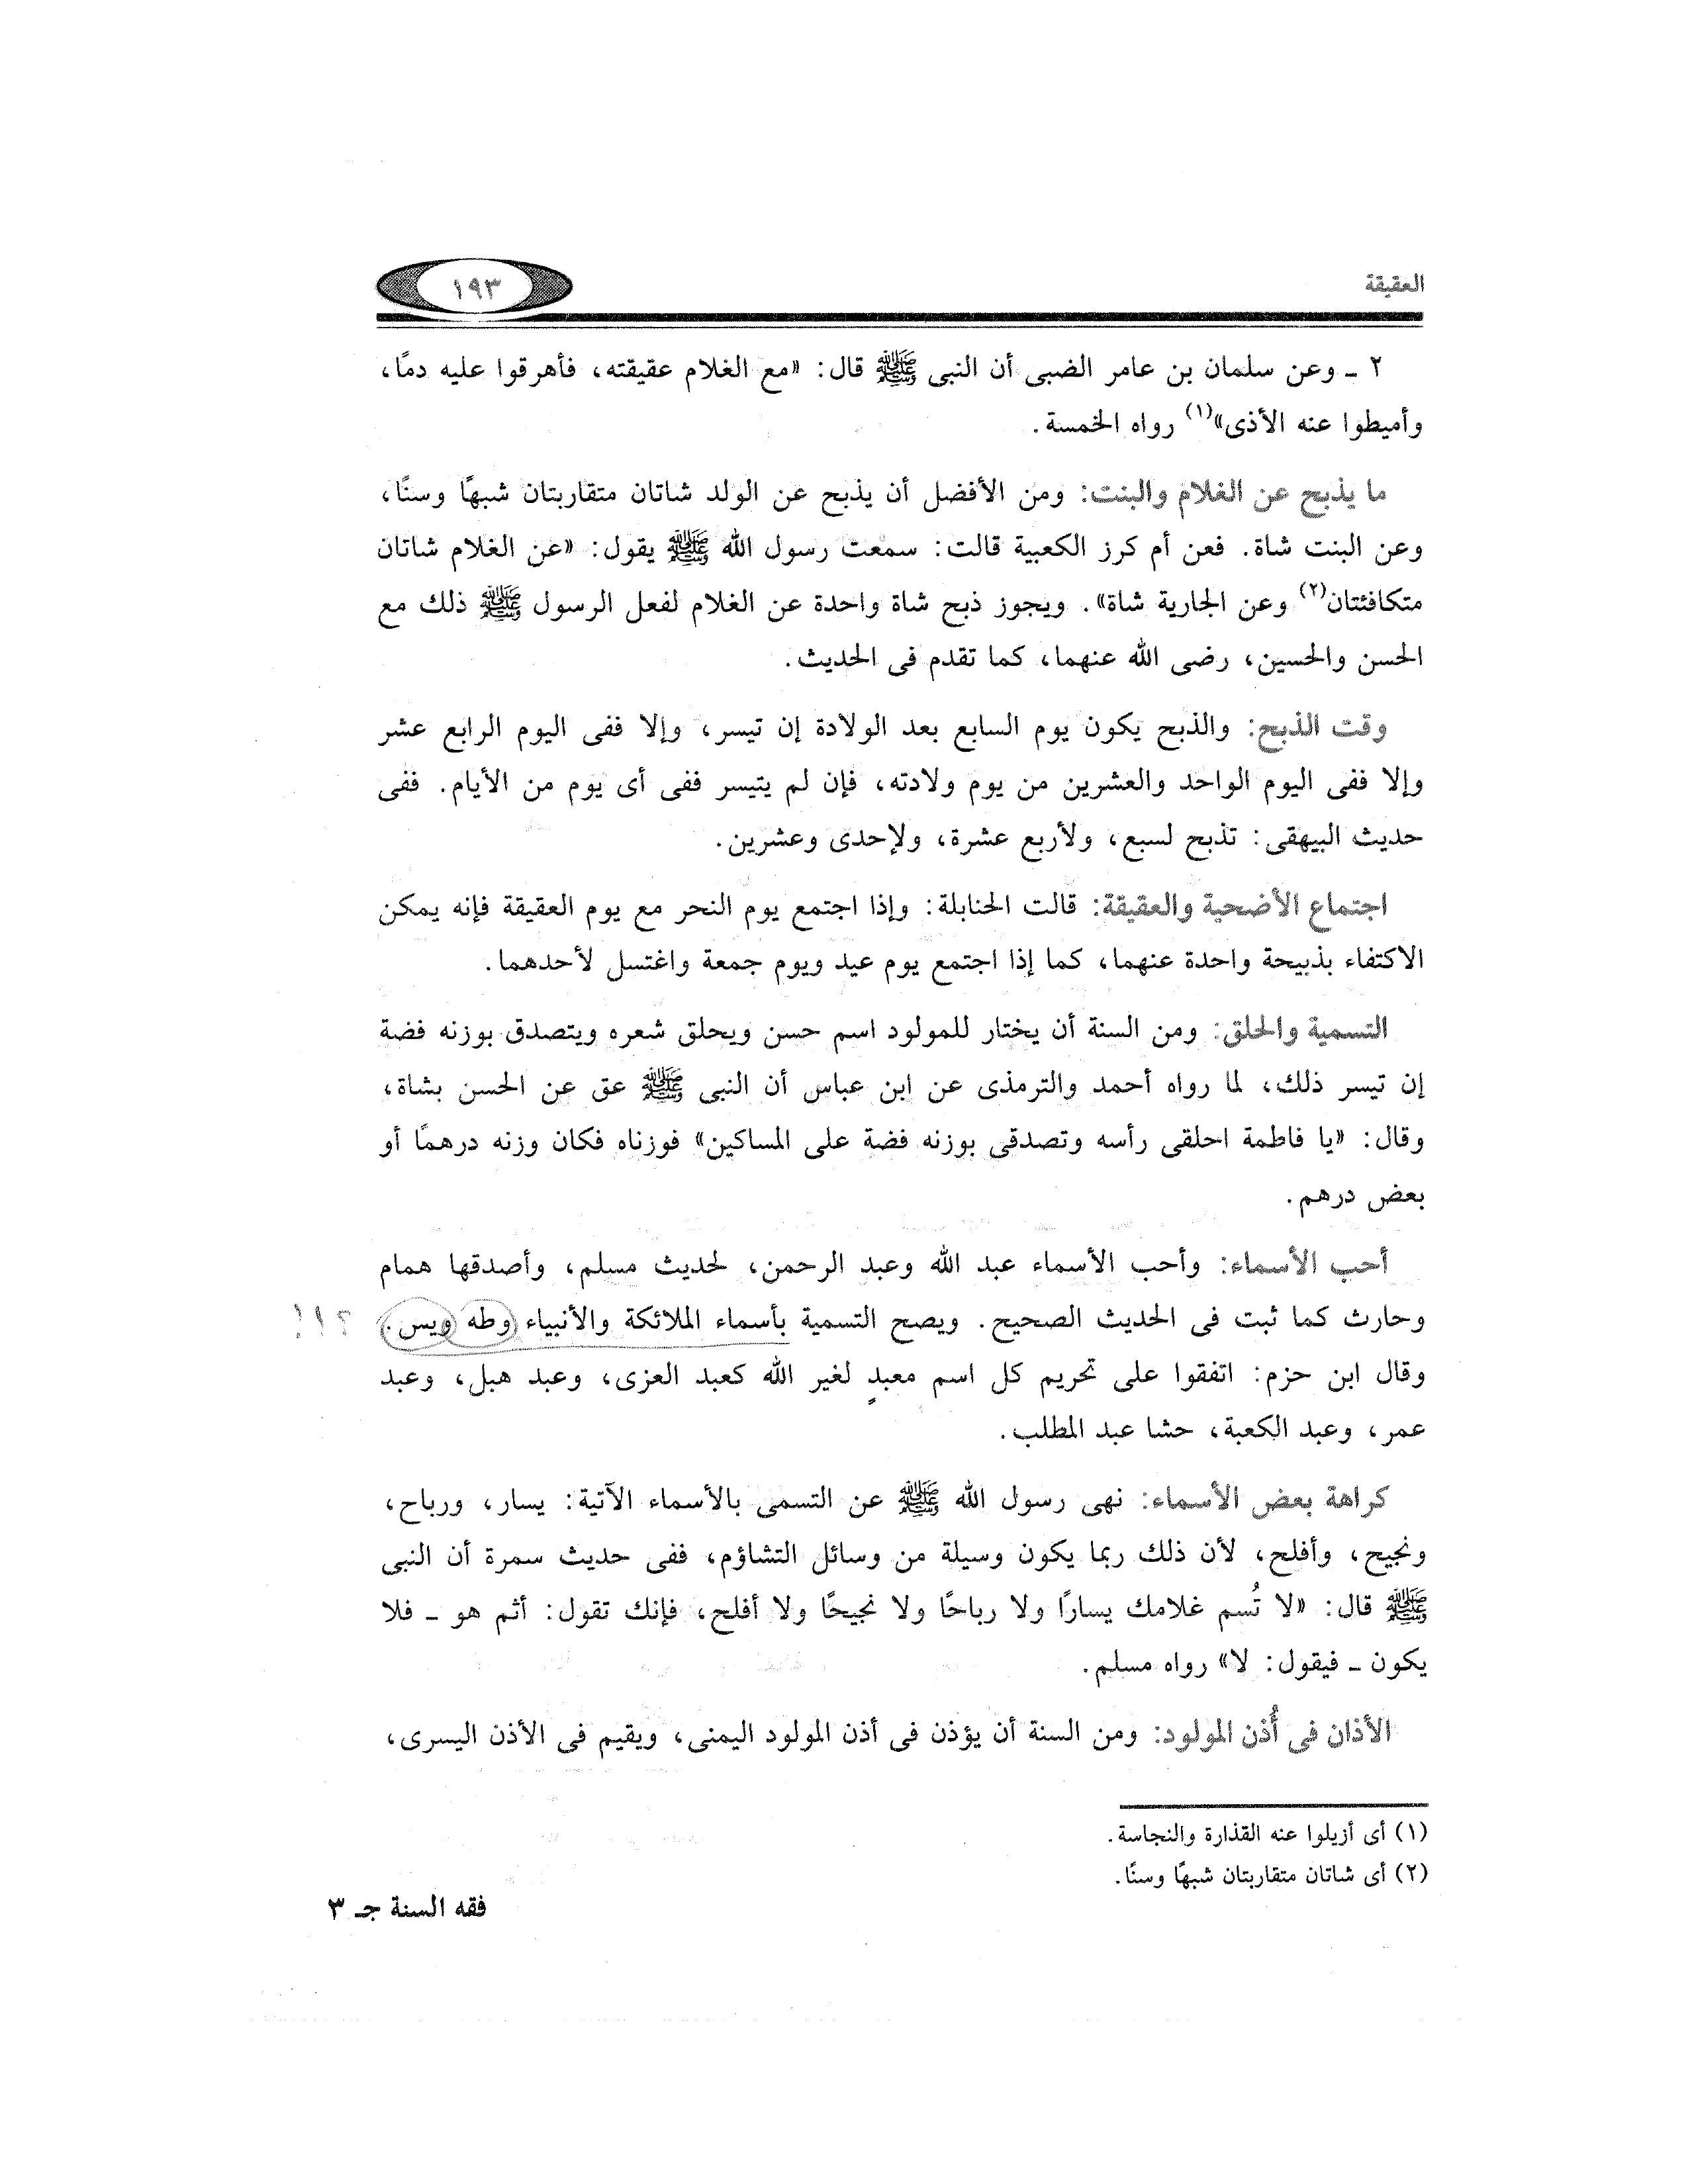 العقيقة
١٩٣
٢ ـ وعن سلمان بن عامر الضبى أن النبى ﷺ قال: «مع الغلام عقيقته، فأهرقوا عليه دمًا،
وأميطوا عنه الأذى»(١) رواه الخمسة.
ما يذبح عن الغلام والبنت: ومن الأفضل أن يذبح عن الولد شاتان متقاربتان شبهًا وسنًا،
وعن البنت شاة. فعن أم كرز الكعبية قالت: سمعت رسول الله ﷺ يقول: «عن الغلام شاتان
متكافئتان(٢) وعن الجارية شاة». ويجوز ذبح شاة واحدة عن الغلام لفعل الرسول ﷺ ذلك مع
الحسن والحسين، رضى الله عنهما، كما تقدم فى الحديث.
وقت الذبح: والذبح يكون يوم السابع بعد الولادة إن تيسر، وإلا ففى اليوم الرابع عشر
وإلا ففى اليوم الواحد والعشرين من يوم ولادته، فإن لم يتيسر ففى أى يوم من الأيام. ففى
حديث البيهقى: تذبح لسبع، ولأربع عشرة، ولإحدى وعشرين.
اجتماع الأضحية والعقيقة: قالت الحنابلة: وإذا اجتمع يوم النحر مع يوم العقيقة فإنه يمكن
الاكتفاء بذبيحة واحدة عنهما، كما إذا اجتمع يوم عيد ويوم جمعة واغتسل لأحدهما.
التسمية والحلق: ومن السنة أن يختار للمولود اسم حسن ويحلق شعره ويتصدق بوزنه فضة
إن تيسر ذلك، لما رواه أحمد والترمذى عن ابن عباس أن النبى ﷺ عق عن الحسن بشاة،
وقال: «يا فاطمة احلقى رأسه وتصدقى بوزنه فضة على المساكين» فوزناه فكان وزنه درهمًا أو
بعض درهم.
أحب الأسماء: وأحب الأسماء عبد الله وعبد الرحمن، لحديث مسلم، وأصدقها همام
وحارث كما ثبت فى الحديث الصحيح. ويصح التسمية بأسماء الملائكة والأنبياء وطه ويس. ؟!!
وقال ابن حزم: اتفقوا على تحريم كل اسم معبدٍ لغير الله كعبد العزى، وعبد هبل، وعبد
عمر، وعبد الكعبة، حشا عبد المطلب.
كراهة بعض الأسماء: نهى رسول الله ﷺ عن التسمى بالأسماء الآتية: يسار، ورباح،
ونجيح، وأفلح، لأن ذلك ربما يكون وسيلة من وسائل التشاؤم، ففى حديث سمرة أن النبى
ﷺ قال: «لا تُسم غلامك يسارًا ولا رباحًا ولا نجيحًا ولا أفلح، فإنك تقول: أثم هو ـ فلا
يكون ـ فيقول: لا» رواه مسلم.
الأذان فى أُذن المولود: ومن السنة أن يؤذن فى أذن المولود اليمنى، ويقيم فى الأذن اليسرى،
(١) أى أزيلوا عنه القذارة والنجاسة.
(٢) أى شاتان متقاربتان شبهًا وسنًا.
فقه السنة جـ ٣